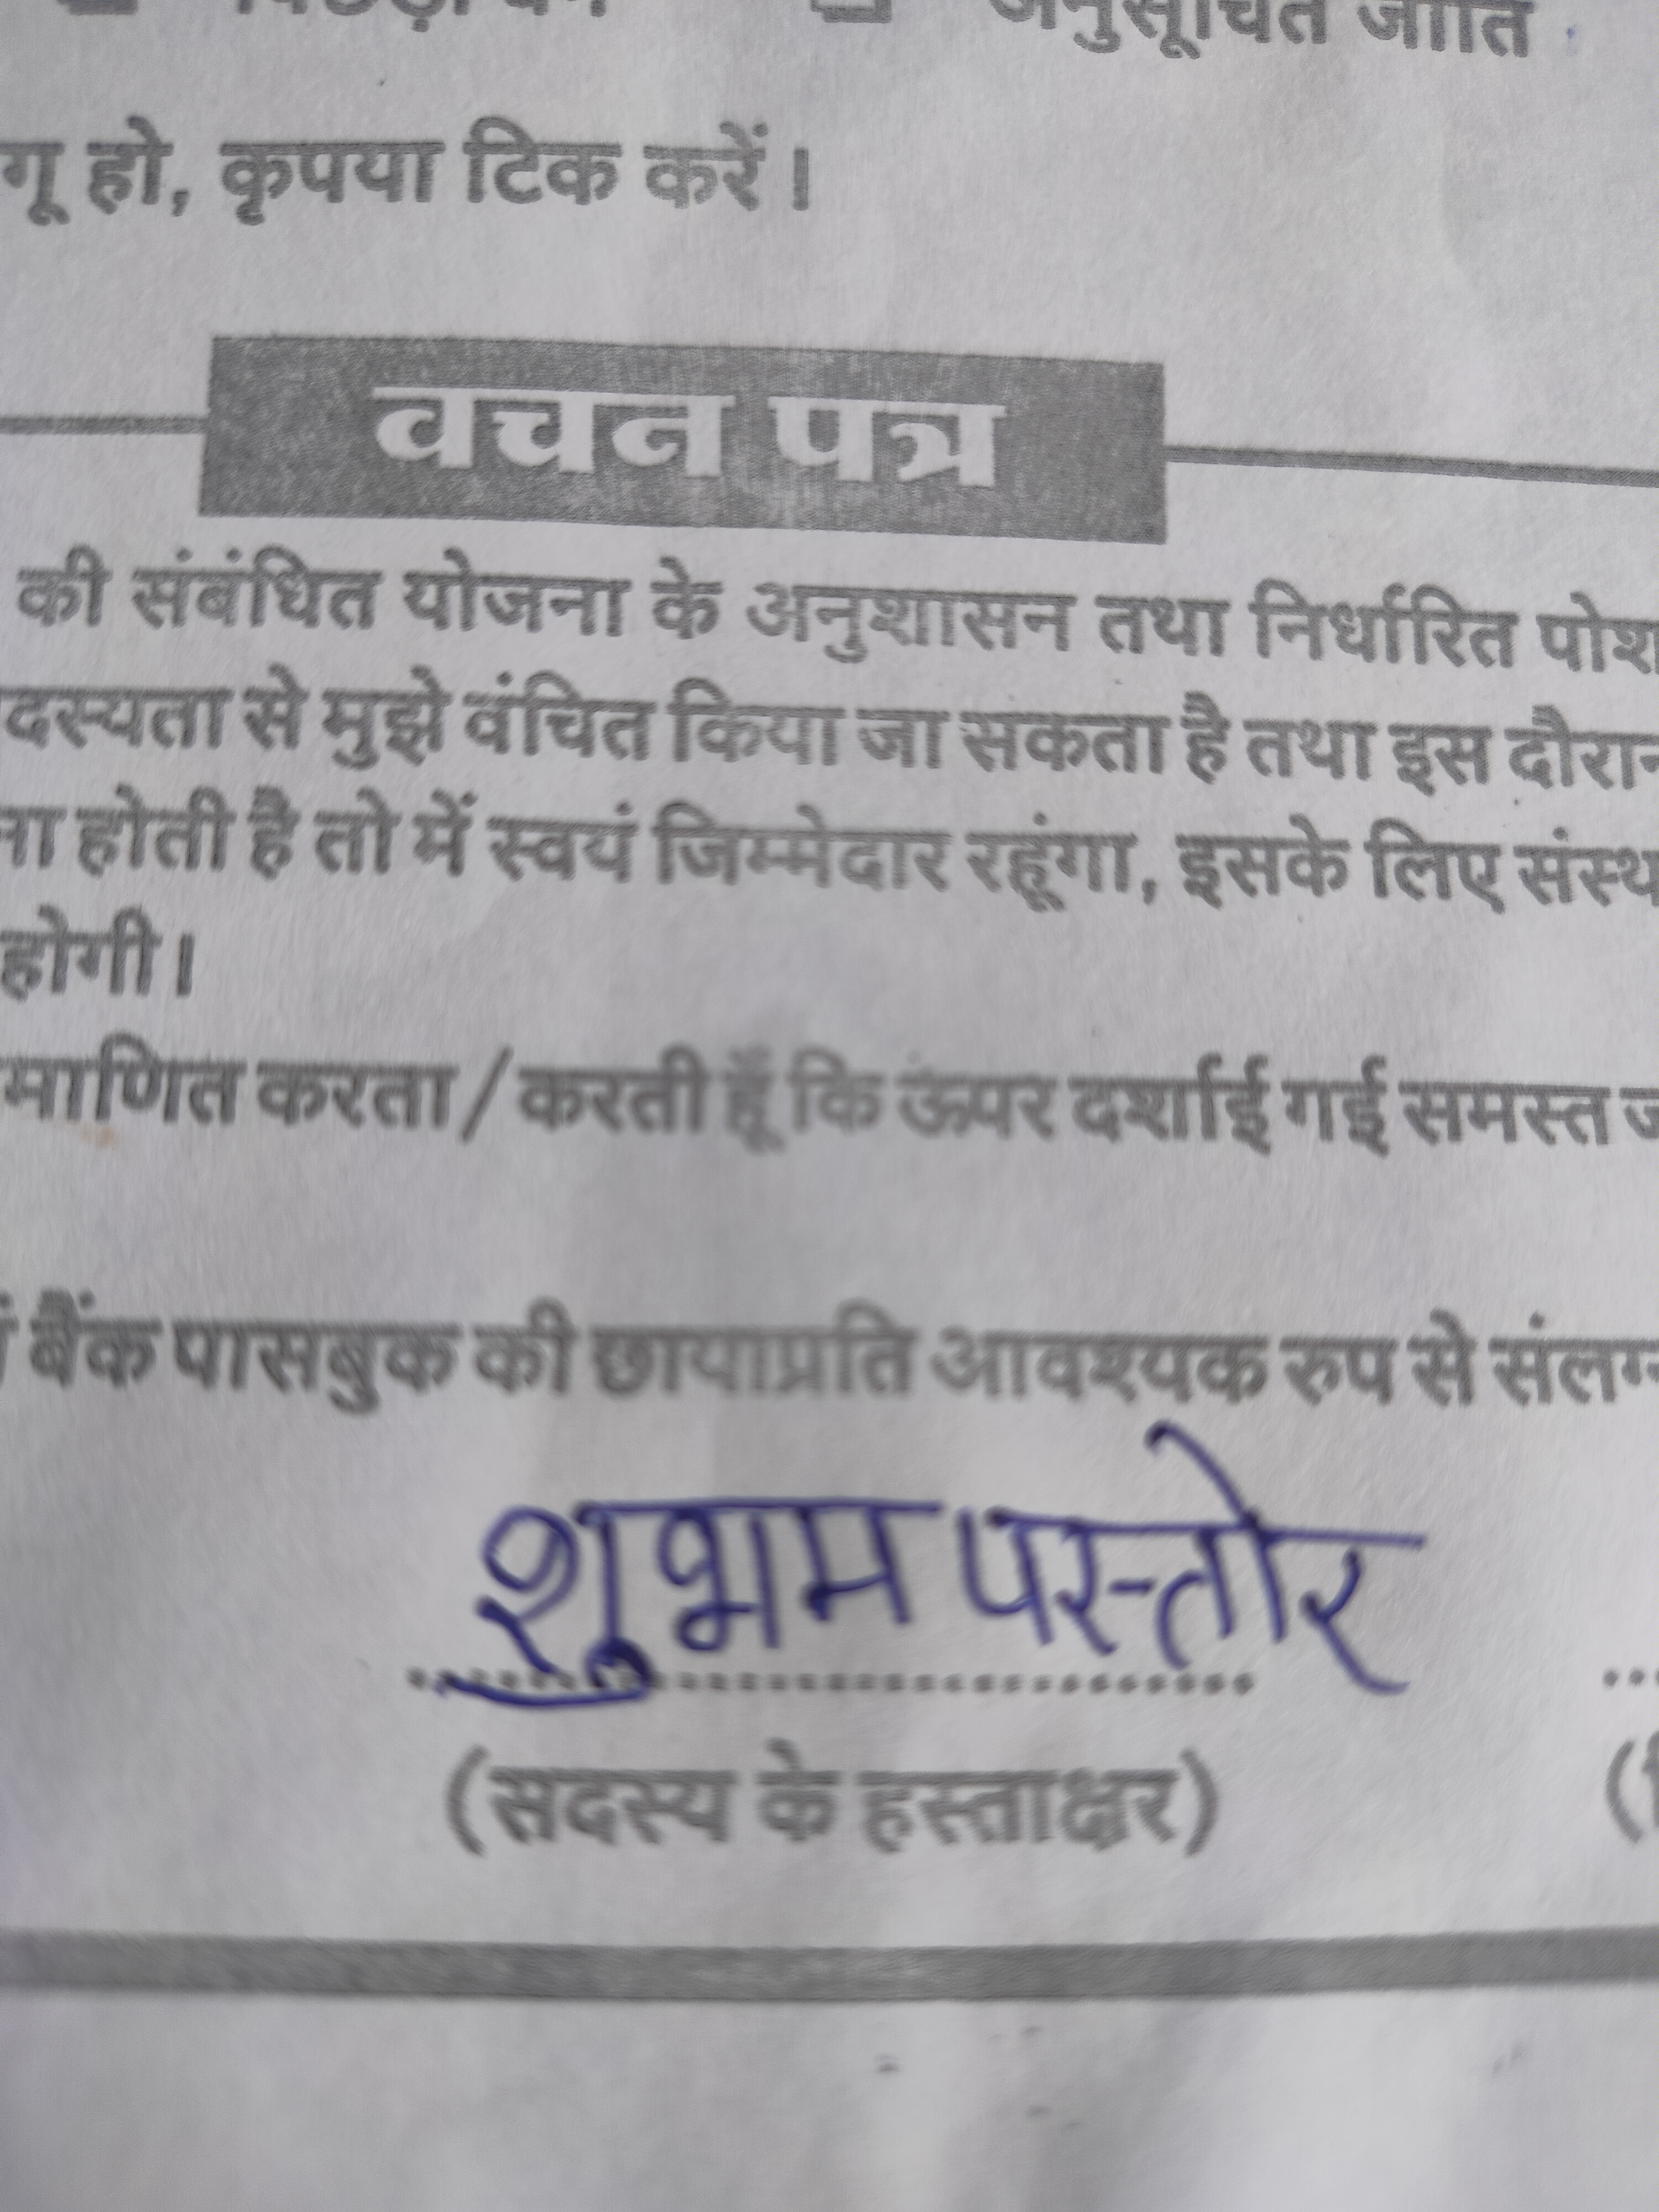 अनुसूचित जाति
गू हो, कृपया टिक करें।
वचन पत्र
की संबंधित योजना के अनुशासन तथा निर्धारित पोश
दस्यता से मुझे वंचित किया जा सकता है तथा इस दौरान
ना होती है तो में स्वयं जिम्मेदार रहूंगा, इसके लिए संस्थ
होगी।
माणित करता / करती हूँ कि ऊपर दर्शाई गई समस्त ज
बैंक पासबुक की छायाप्रति आवश्यक रुप से संलग्न
शुभम पस्तोर
(सदस्य के हस्ताक्षर)